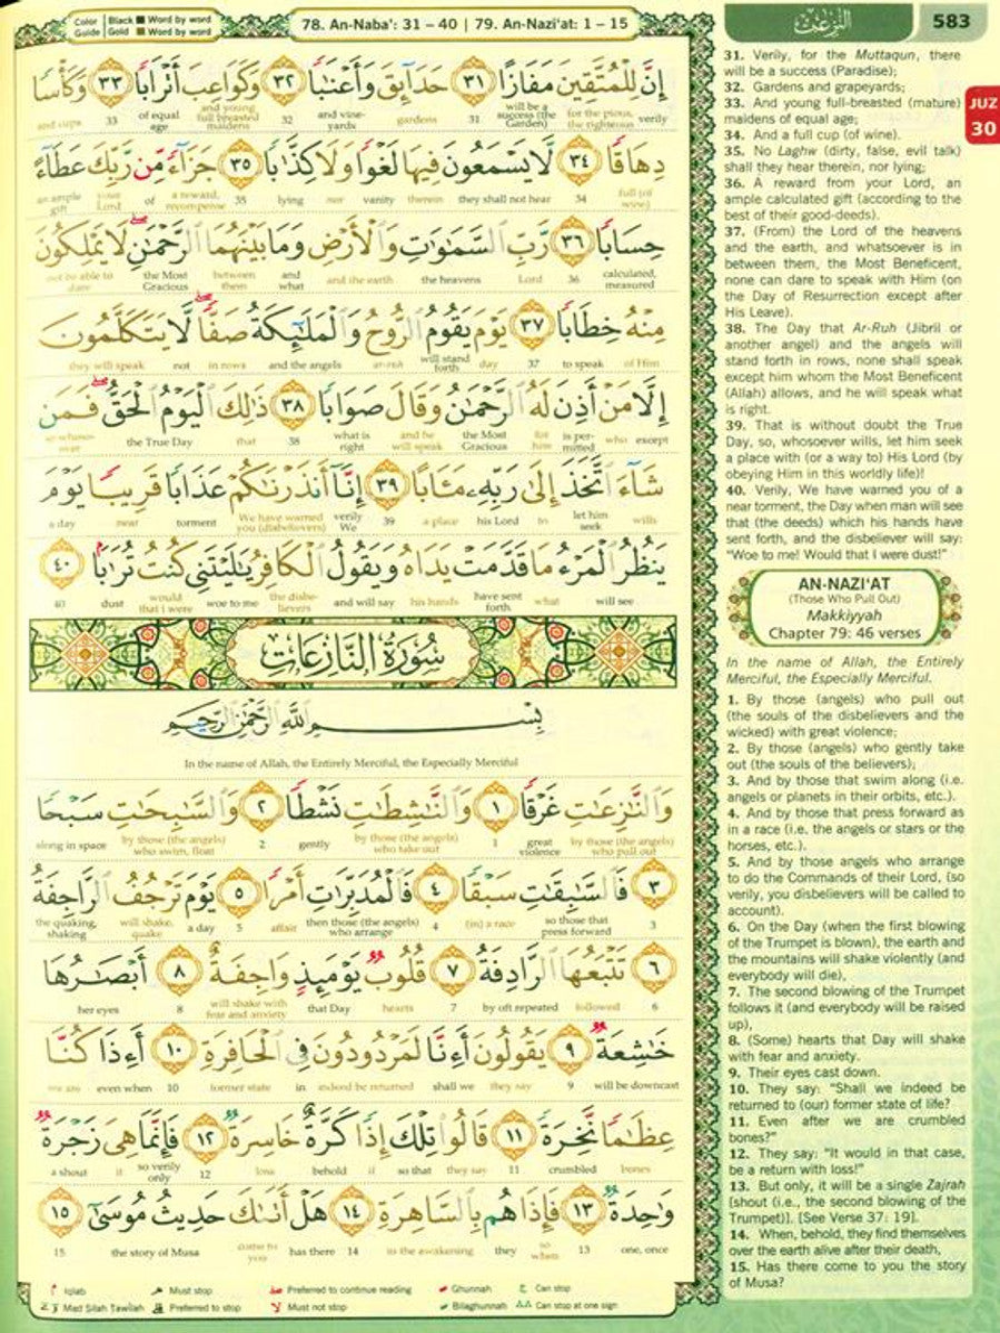 Color Guide | Black ■ Word by word
Gold ■ Word by word
78. An-Naba': 31 – 40 | 79. An-Nazi'at: 1 – 15
إِنَّ لِلْمُتَّقِينَ مَفَازًا ٣١ حَدَآئِقَ وَأَعْنَٰبًا ٣٢ وَكَوَاعِبَ أَتْرَابًا ٣٣ وَكَأْسًا
and cups 33 of equal age and young full breasted maidens 32 and vineyards gardens 31 will be a success (the Garden) for the pious, the righteous verily
دِهَاقًا ٣٤ لَّا يَسْمَعُونَ فِيهَا لَغْوًا وَلَا كِذَّٰبًا ٣٥ جَزَآءً مِّن رَّبِّكَ عَطَآءً
an ample gift your Lord of a reward, recompense 35 lying nor vanity therein they shall not hear 34 full (of wine)
حِسَابًا ٣٦ رَّبِّ السَّمَٰوَٰتِ وَالْأَرْضِ وَمَا بَيْنَهُمَا الرَّحْمَٰنِ لَا يَمْلِكُونَ
not be able to dare the Most Gracious between them and what and the earth the heavens Lord 36 calculated, measured
مِنْهُ خِطَابًا ٣٧ يَوْمَ يَقُومُ الرُّوحُ وَالْمَلَٰٓئِكَةُ صَفًّا لَّا يَتَكَلَّمُونَ
they will speak not in rows and the angels ar-ruh will stand forth day 37 to speak of Him
إِلَّا مَنْ أَذِنَ لَهُ الرَّحْمَٰنُ وَقَالَ صَوَابًا ٣٨ ذَٰلِكَ الْيَوْمُ الْحَقُّ فَمَن
so whosoever the True Day that 38 what is right and he will speak the Most Gracious for him is permitted who except
شَآءَ اتَّخَذَ إِلَىٰ رَبِّهِۦ مَـَٔابًا ٣٩ إِنَّآ أَنذَرْنَٰكُمْ عَذَابًا قَرِيبًا يَوْمَ
a day near torment We have warned you (disbelievers) verily We 39 a place his Lord to let him seek wills
يَنظُرُ الْمَرْءُ مَا قَدَّمَتْ يَدَاهُ وَيَقُولُ الْكَافِرُ يَٰلَيْتَنِى كُنتُ تُرَٰبًا ٤٠
40 dust would that i were woe to me the disbelievers and will say his hands have sent forth what will see
سُورَةُ النَّازِعَاتِ
بِسْمِ اللَّهِ الرَّحْمَٰنِ الرَّحِيمِ
In the name of Allah, the Entirely Merciful, the Especially Merciful
وَالنَّٰزِعَٰتِ غَرْقًا ١ وَالنَّٰشِطَٰتِ نَشْطًا ٢ وَالسَّٰبِحَٰتِ سَبْحًا
along in space by those (the angels) who swim, float 2 gently by those (the angels) who take out 1 great violence by those (the angels) who pull out
٣ فَالسَّٰبِقَٰتِ سَبْقًا ٤ فَالْمُدَبِّرَٰتِ أَمْرًا ٥ يَوْمَ تَرْجُفُ الرَّاجِفَةُ
the quaking, shaking will shake, quake a day 5 affair then those (the angels) who arrange 4 (in) a race so those that press forward 3
٦ تَتْبَعُهَا الرَّادِفَةُ ٧ قُلُوبٌ يَوْمَئِذٍ وَاجِفَةٌ ٨ أَبْصَٰرُهَا
her eyes 8 will shake with fear and anxiety that Day hearts 7 by oft repeated followed 6
خَٰشِعَةٌ ٩ يَقُولُونَ أَءِنَّا لَمَرْدُودُونَ فِى الْحَافِرَةِ ١٠ أَءِذَا كُنَّا
we are even when 10 former state in indeed be returned shall we they say 9 will be downcast
عِظَٰمًا نَّخِرَةً ١١ قَالُوا تِلْكَ إِذًا كَرَّةٌ خَاسِرَةٌ ١٢ فَإِنَّمَا هِىَ زَجْرَةٌ
a shout it so verily only 12 loss behold if so that they say 11 crumbled bones
وَٰحِدَةٌ ١٣ فَإِذَا هُم بِالسَّاهِرَةِ ١٤ هَلْ أَتَىٰكَ حَدِيثُ مُوسَىٰٓ ١٥
15 the story of Musa come to you has there 14 in the awakening they so, when 13 one, once
Iqlab Must stop Preferred to continue reading Ghunnah Can stop
Mad Silah Tawilah Preferred to stop Must not stop Bilaghunnah Can stop at one sign
النّٰزعٰت
583
JUZ
30
31. Verily, for the Muttaqun, there
will be a success (Paradise);
32. Gardens and grapeyards;
33. And young full-breasted (mature)
maidens of equal age;
34. And a full cup (of wine).
35. No Laghw (dirty, false, evil talk)
shall they hear therein, nor lying;
36. A reward from your Lord, an
ample calculated gift (according to the
best of their good-deeds).
37. (From) the Lord of the heavens
and the earth, and whatsoever is in
between them, the Most Beneficent,
none can dare to speak with Him (on
the Day of Resurrection except after
His Leave).
38. The Day that Ar-Ruh (Jibril or
another angel) and the angels will
stand forth in rows, none shall speak
except him whom the Most Beneficent
(Allah) allows, and he will speak what
is right.
39. That is without doubt the True
Day, so, whosoever wills, let him seek
a place with (or a way to) His Lord (by
obeying Him in this worldly life)!
40. Verily, We have warned you of a
near torment, the Day when man will see
that (the deeds) which his hands have
sent forth, and the disbeliever will say:
"Woe to me! Would that I were dust!"
AN-NAZI'AT
(Those Who Pull Out)
Makkiyyah
Chapter 79: 46 verses
In the name of Allah, the Entirely
Merciful, the Especially Merciful.
1. By those (angels) who pull out
(the souls of the disbelievers and the
wicked) with great violence;
2. By those (angels) who gently take
out (the souls of the believers);
3. And by those that swim along (i.e.
angels or planets in their orbits, etc.).
4. And by those that press forward as
in a race (i.e. the angels or stars or the
horses, etc.).
5. And by those angels who arrange
to do the Commands of their Lord, (so
verily, you disbelievers will be called to
account).
6. On the Day (when the first blowing
of the Trumpet is blown), the earth and
the mountains will shake violently (and
everybody will die),
7. The second blowing of the Trumpet
follows it (and everybody will be raised
up),
8. (Some) hearts that Day will shake
with fear and anxiety.
9. Their eyes cast down.
10. They say: "Shall we indeed be
returned to (our) former state of life?
11. Even after we are crumbled
bones?"
12. They say: "It would in that case,
be a return with loss!"
13. But only, it will be a single Zajrah
[shout (i.e., the second blowing of the
Trumpet)]. [See Verse 37: 19].
14. When, behold, they find themselves
over the earth alive after their death,
15. Has there come to you the story
of Musa?